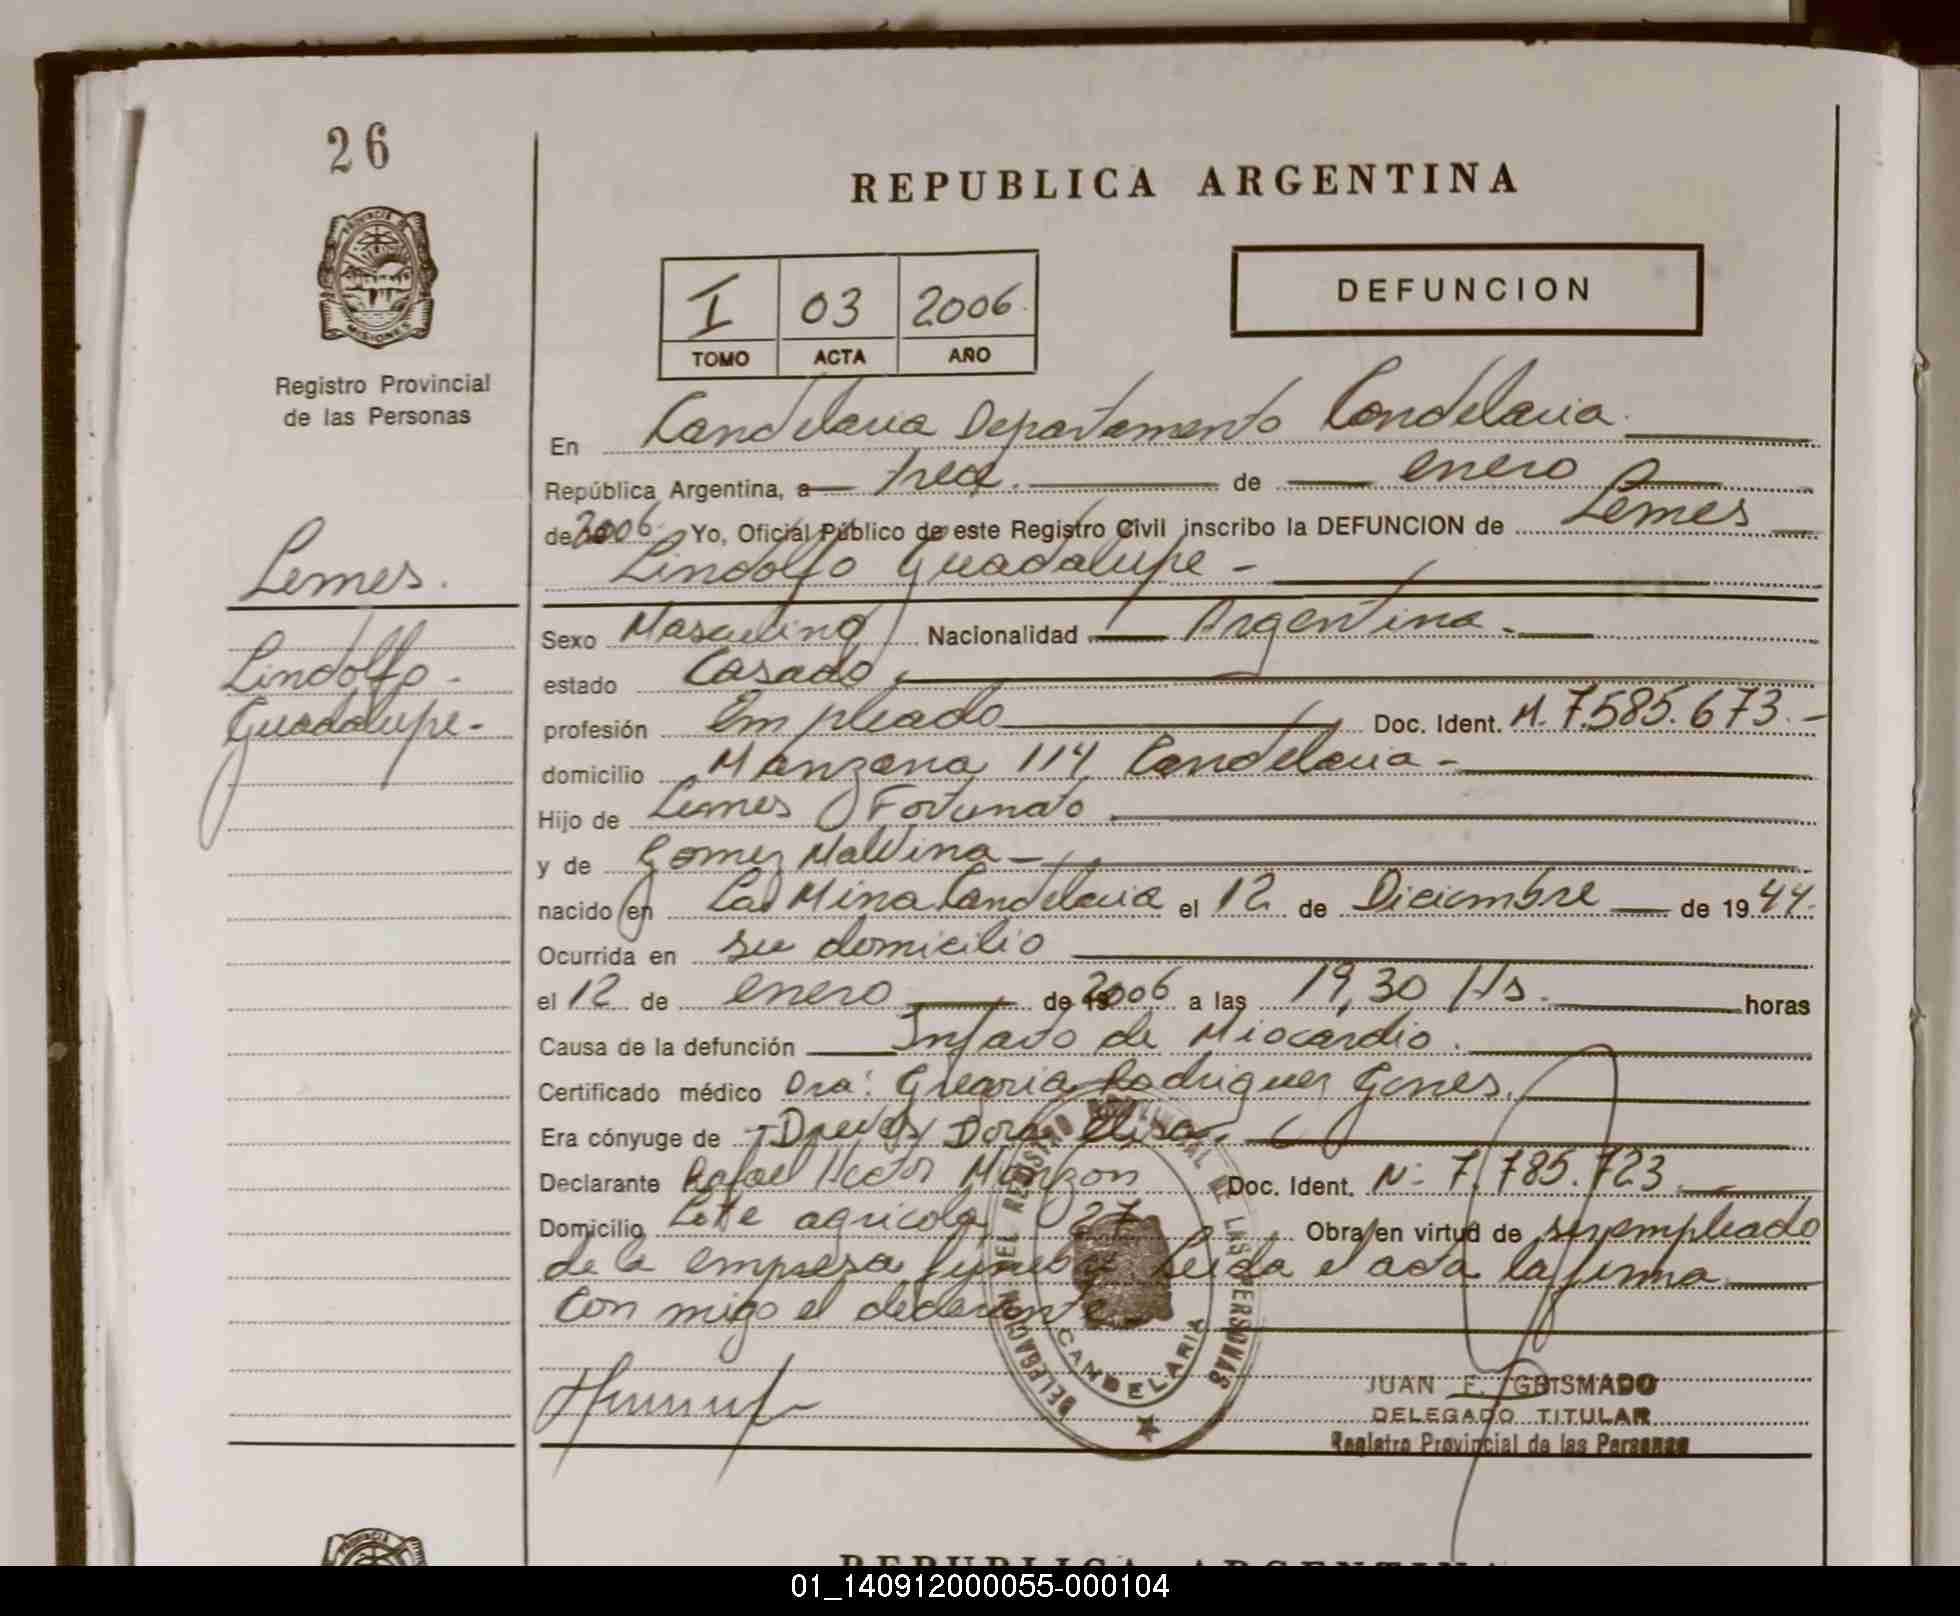 26
REPUBLICA ARGENTINA
PROVINCIA DE
MISIONES
Registro Provincial
de las Personas
I 03 2006
TOMO ACTA AÑO
DEFUNCION
En Candelaria Departamento Candelaria
República Argentina, a trece de enero
de 2006 Yo, Oficial Público de este Registro Civil inscribo la DEFUNCION de Lemes
Lindolfo Guadalupe -
Lemes.
Lindolfo -
Guadalupe -
Sexo Masculino Nacionalidad Argentina -
estado Casado
profesión Empleado Doc. Ident. M. 7.585.673.-
domicilio Manzana 114 Candelaria -
Hijo de Lemes Fortunato
y de Gomez Malvina -
nacido en La Mina Candelaria el 12 de Diciembre de 1944.
Ocurrida en su domicilio
el 12 de enero de 2006 a las 19,30 Hs. horas
Causa de la defunción Infarto de Miocardio.
Certificado médico Dra: Rodriguez
Era cónyuge de Dora Elisa
Declarante Rafael Hector Monzon Doc. Ident. N: 7.785.723
Domicilio Lote agricola 27 Obra en virtud de ser empleado
de la empresa funebre Leida el acta la firma
con migo el declarante
DELEGACION DEL REGISTRO PROVINCIAL DE LAS PERSONAS
CANDELARIA
JUAN E. GRISMADO
DELEGADO TITULAR
Registro Provincial de las Personas
REPUBLICA ARGENTINA
01_140912000055-000104